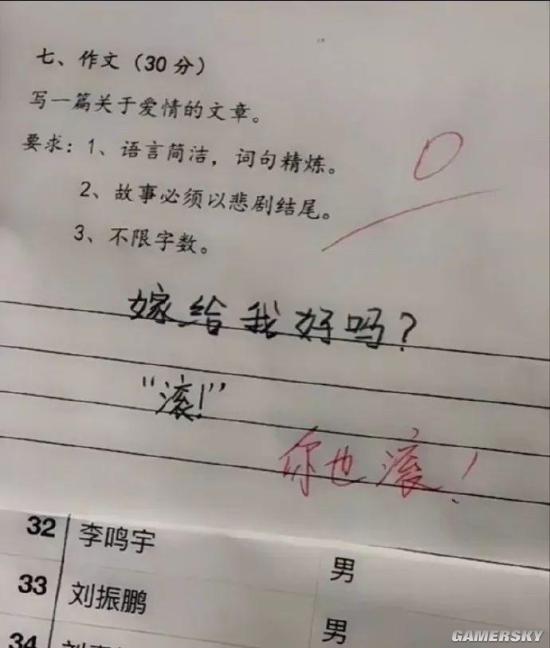 七、作文（30分）
写一篇关于爱情的文章。
要求：1、语言简洁，词句精炼。
2、故事必须以悲剧结尾。
3、不限字数。
0
嫁给我好吗？
“滚！”
你也滚！
32 李鸣宇 男
33 刘振鹏 男
34
GAMERSKY